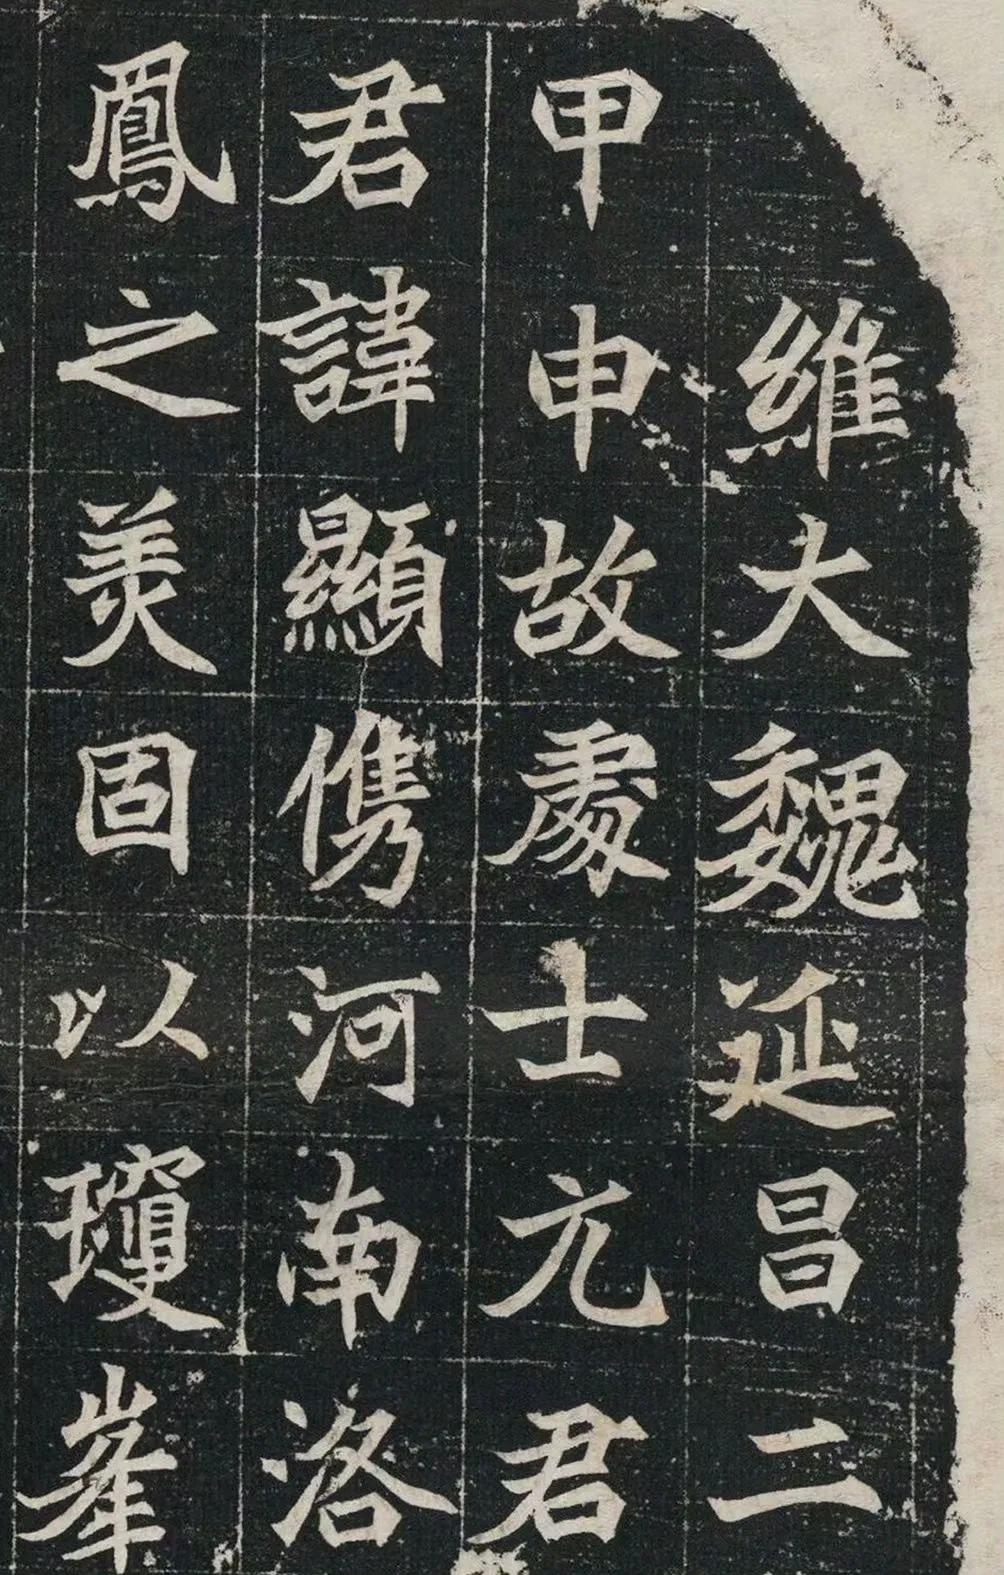 維大魏延昌二
甲申故處士元君
君諱顯儁河南洛
鳳之美固以瓊峯